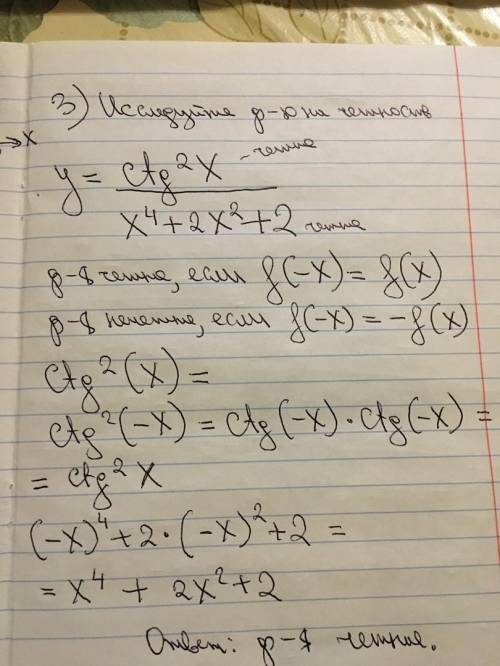 3) Исследуйте ф-ю на четность
→x
y = ctg²x - четна
x⁴+2x²+2 четна
ф-я четна, если f(-x) = f(x)
ф-я нечетна, если f(-x) = -f(x)
ctg²(x) =
ctg²(-x) = ctg(-x)·ctg(-x) =
= ctg²x
(-x)⁴+2·(-x)²+2 =
= x⁴ + 2x²+2
Ответ: ф-я четная.